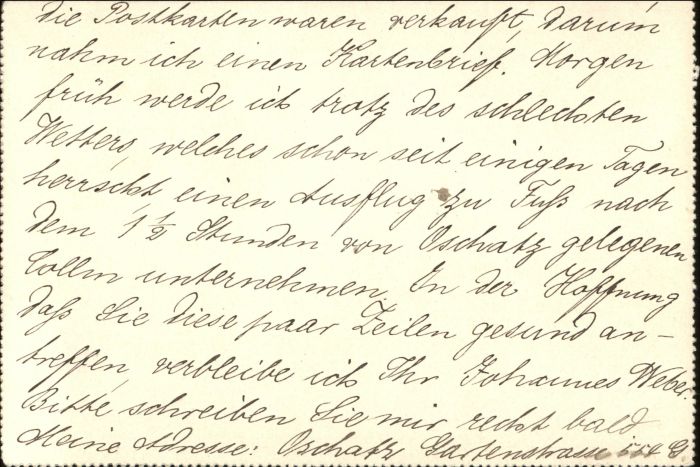 die Postkarten waren verkauft, darum
nahm ich einen Kartenbrief. Morgen
früh werde ich trotz des schlechten
Wetters, welches schon seit einigen Tagen
herrscht einen Ausflug zu Fuß nach
dem 1 1/2 Stunden von Oschatz gelegenen
Collm unternehmen. In der Hoffnung
daß Sie diese paar Zeilen gesund an-
treffen, verbleibe ich Ihr Johannes Weber.
Bitte schreiben Sie mir recht bald
Meine Adresse: Oschatz Gartenstrasse 554 E.